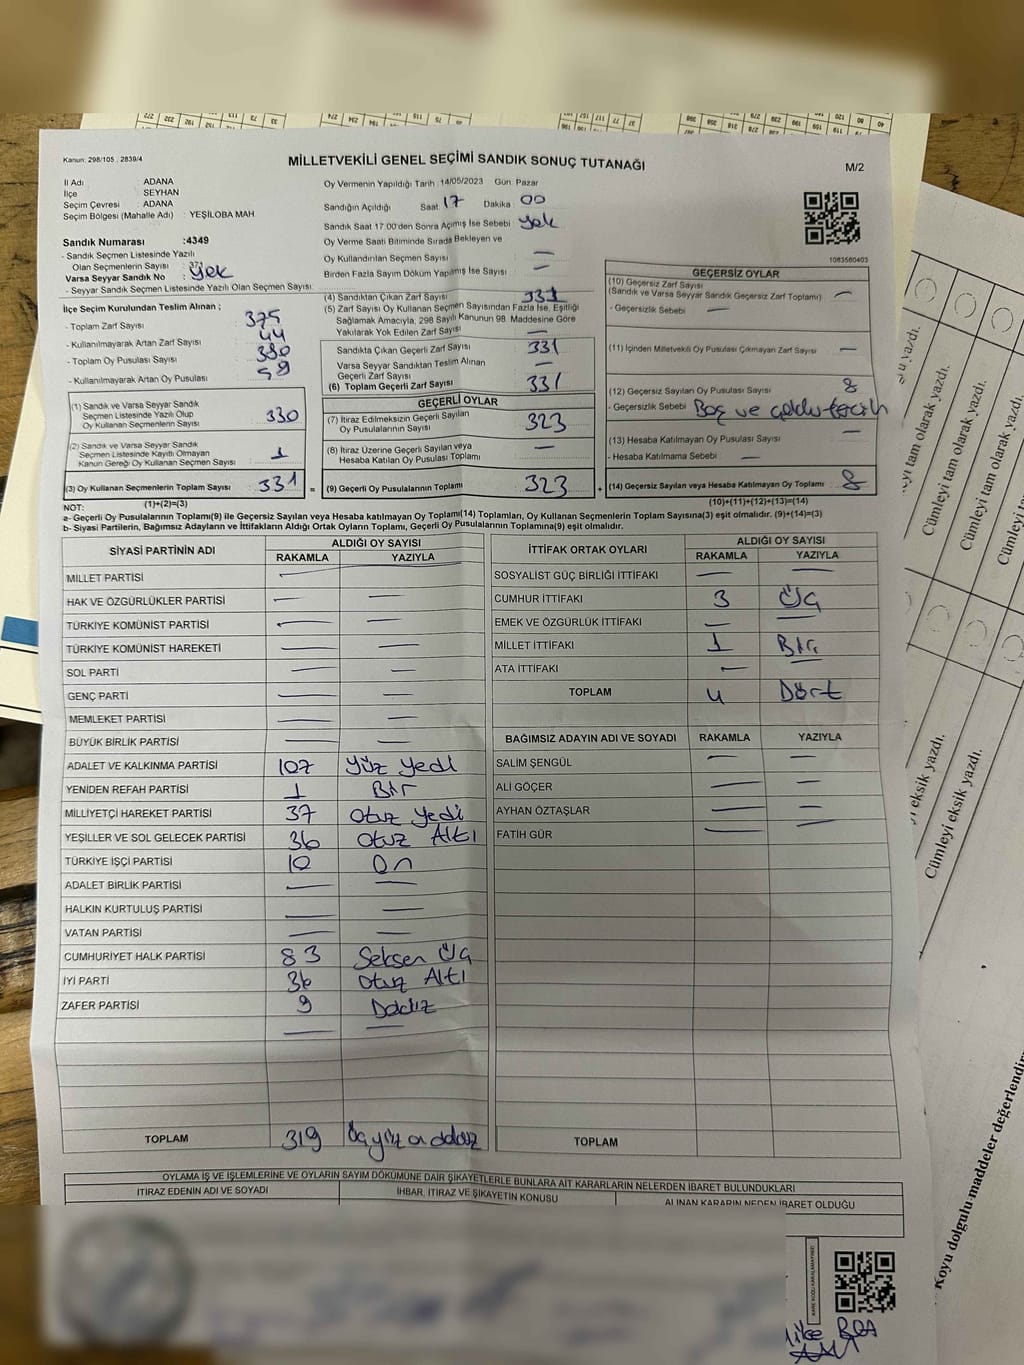 Kanun: 298/105 , 2839/4
MİLLETVEKİLİ GENEL SEÇİMİ SANDIK SONUÇ TUTANAĞI
M/2
İl Adı ADANA
İlçe SEYHAN
Seçim Çevresi : ADANA
Seçim Bölgesi (Mahalle Adı) : YEŞİLOBA MAH
Sandık Numarası :4349
- Sandık Seçmen Listesinde Yazılı
Olan Seçmenlerin Sayısı : 371
Varsa Seyyar Sandık No : yok
- Seyyar Sandık Seçmen Listesinde Yazılı Olan Seçmen Sayısı:
Oy Vermenin Yapıldığı Tarih : 14/05/2023 Gün: Pazar
Sandığın Açıldığı Saat : 17 Dakika : 00
Sandık Saat 17:00'den Sonra Açımış İse Sebebi: yok
Oy Verme Saati Bitiminde Sırada Bekleyen ve
Oy Kullandırılan Seçmen Sayısı : —
Birden Fazla Sayım Döküm Yapılmış İse Sayısı : —
1083560403
İlçe Seçim Kurulundan Teslim Alınan ;
- Toplam Zarf Sayısı : 375
- Kullanılmayarak Artan Zarf Sayısı : 44
- Toplam Oy Pusulası Sayısı : 390
- Kullanılmayarak Artan Oy Pusulası : 59
(1) Sandık ve Varsa Seyyar Sandık
Seçmen Listesinde Yazılı Olup
Oy Kullanan Seçmenlerin Sayısı : 330
(2) Sandık ve Varsa Seyyar Sandık
Seçmen Listesinde Kayıtlı Olmayan
Kanun Gereği Oy Kullanan Seçmen Sayısı : 1
(3) Oy Kullanan Seçmenlerin Toplam Sayısı : 331 =
(1)+(2)=(3)
(4) Sandıktan Çıkan Zarf Sayısı : 331
(5) Zarf Sayısı Oy Kullanan Seçmen Sayısından Fazla İse, Eşitliği
Sağlamak Amacıyla, 298 Sayılı Kanunun 98. Maddesine Göre
Yakılarak Yok Edilen Zarf Sayısı : —
Sandıkta Çıkan Geçerli Zarf Sayısı : 331
Varsa Seyyar Sandıktan Teslim Alınan
Geçerli Zarf Sayısı : —
(6) Toplam Geçerli Zarf Sayısı : 331
GEÇERLİ OYLAR
(7) İtiraz Edilmeksizin Geçerli Sayılan
Oy Pusulalarının Sayısı : 323
(8) İtiraz Üzerine Geçerli Sayılan veya
Hesaba Katılan Oy Pusulası Toplamı : —
(9) Geçerli Oy Pusulalarının Toplamı : 323 +
GEÇERSİZ OYLAR
(10) Geçersiz Zarf Sayısı
(Sandık ve Varsa Seyyar Sandık Geçersiz Zarf Toplamı) : —
- Geçersizlik Sebebi : —
(11) İçinden Milletvekili Oy Pusulası Çıkmayan Zarf Sayısı : —
(12) Geçersiz Sayılan Oy Pusulası Sayısı : 8
- Geçersizlik Sebebi : Boş ve çoklu tercih
(13) Hesaba Katılmayan Oy Pusulası Sayısı : —
- Hesaba Katılmama Sebebi : —
(14) Geçersiz Sayılan veya Hesaba Katılmayan Oy Toplamı : 8
(10)+(11)+(12)+(13)=(14)
NOT:
a- Geçerli Oy Pusulalarının Toplamı(9) ile Geçersiz Sayılan veya Hesaba katılmayan Oy Toplamı(14) Toplamları, Oy Kullanan Seçmenlerin Toplam Sayısına(3) eşit olmalıdır. (9)+(14)=(3)
b- Siyasi Partilerin, Bağımsız Adayların ve İttifakların Aldığı Ortak Oyların Toplamı, Geçerli Oy Pusulalarının Toplamına(9) eşit olmalıdır.
SİYASİ PARTİNİN ADI ALDIĞI OY SAYISI
RAKAMLA YAZIYLA
MİLLET PARTİSİ —
HAK VE ÖZGÜRLÜKLER PARTİSİ — —
TÜRKİYE KOMÜNİST PARTİSİ — —
TÜRKİYE KOMÜNİST HAREKETİ — —
SOL PARTİ — —
GENÇ PARTİ — —
MEMLEKET PARTİSİ — —
BÜYÜK BİRLİK PARTİSİ — —
ADALET VE KALKINMA PARTİSİ 107 Yüz Yedi
YENİDEN REFAH PARTİSİ 1 Bir
MİLLİYETÇİ HAREKET PARTİSİ 37 Otuz Yedi
YEŞİLLER VE SOL GELECEK PARTİSİ 36 Otuz Altı
TÜRKİYE İŞÇİ PARTİSİ 10 On
ADALET BİRLİK PARTİSİ — —
HALKIN KURTULUŞ PARTİSİ — —
VATAN PARTİSİ — —
CUMHURİYET HALK PARTİSİ 83 Seksen Üç
İYİ PARTİ 36 Otuz Altı
ZAFER PARTİSİ 9 Dokuz
— —
TOPLAM 319 Üçyüz on dokuz
İTTİFAK ORTAK OYLARI ALDIĞI OY SAYISI
RAKAMLA YAZIYLA
SOSYALİST GÜÇ BİRLİĞİ İTTİFAKI — —
CUMHUR İTTİFAKI 3 Üç
EMEK VE ÖZGÜRLÜK İTTİFAKI — —
MİLLET İTTİFAKI 1 Bir
ATA İTTİFAKI — —
TOPLAM 4 Dört
BAĞIMSIZ ADAYIN ADI VE SOYADI RAKAMLA YAZIYLA
SALİM ŞENGÜL — —
ALİ GÖÇER — —
AYHAN ÖZTAŞLAR — —
FATİH GÜR — —
TOPLAM
OYLAMA İŞ VE İŞLEMLERİNE VE OYLARIN SAYIM DÖKÜMÜNE DAİR ŞİKAYETLERLE BUNLARA AİT KARARLARIN NELERDEN İBARET BULUNDUKLARI
İTİRAZ EDENİN ADI VE SOYADI İHBAR, İTİRAZ VE ŞİKAYETİN KONUSU ALINAN KARARIN NEDEN İBARET OLDUĞU
Cümleyi tam olarak yazdı.
Cümleyi tam olarak yazdı.
Cümleyi
Cümleyi eksik yazdı.
Cümleyi eksik yazdı.
Koyu dolgulu maddeler değerlendir